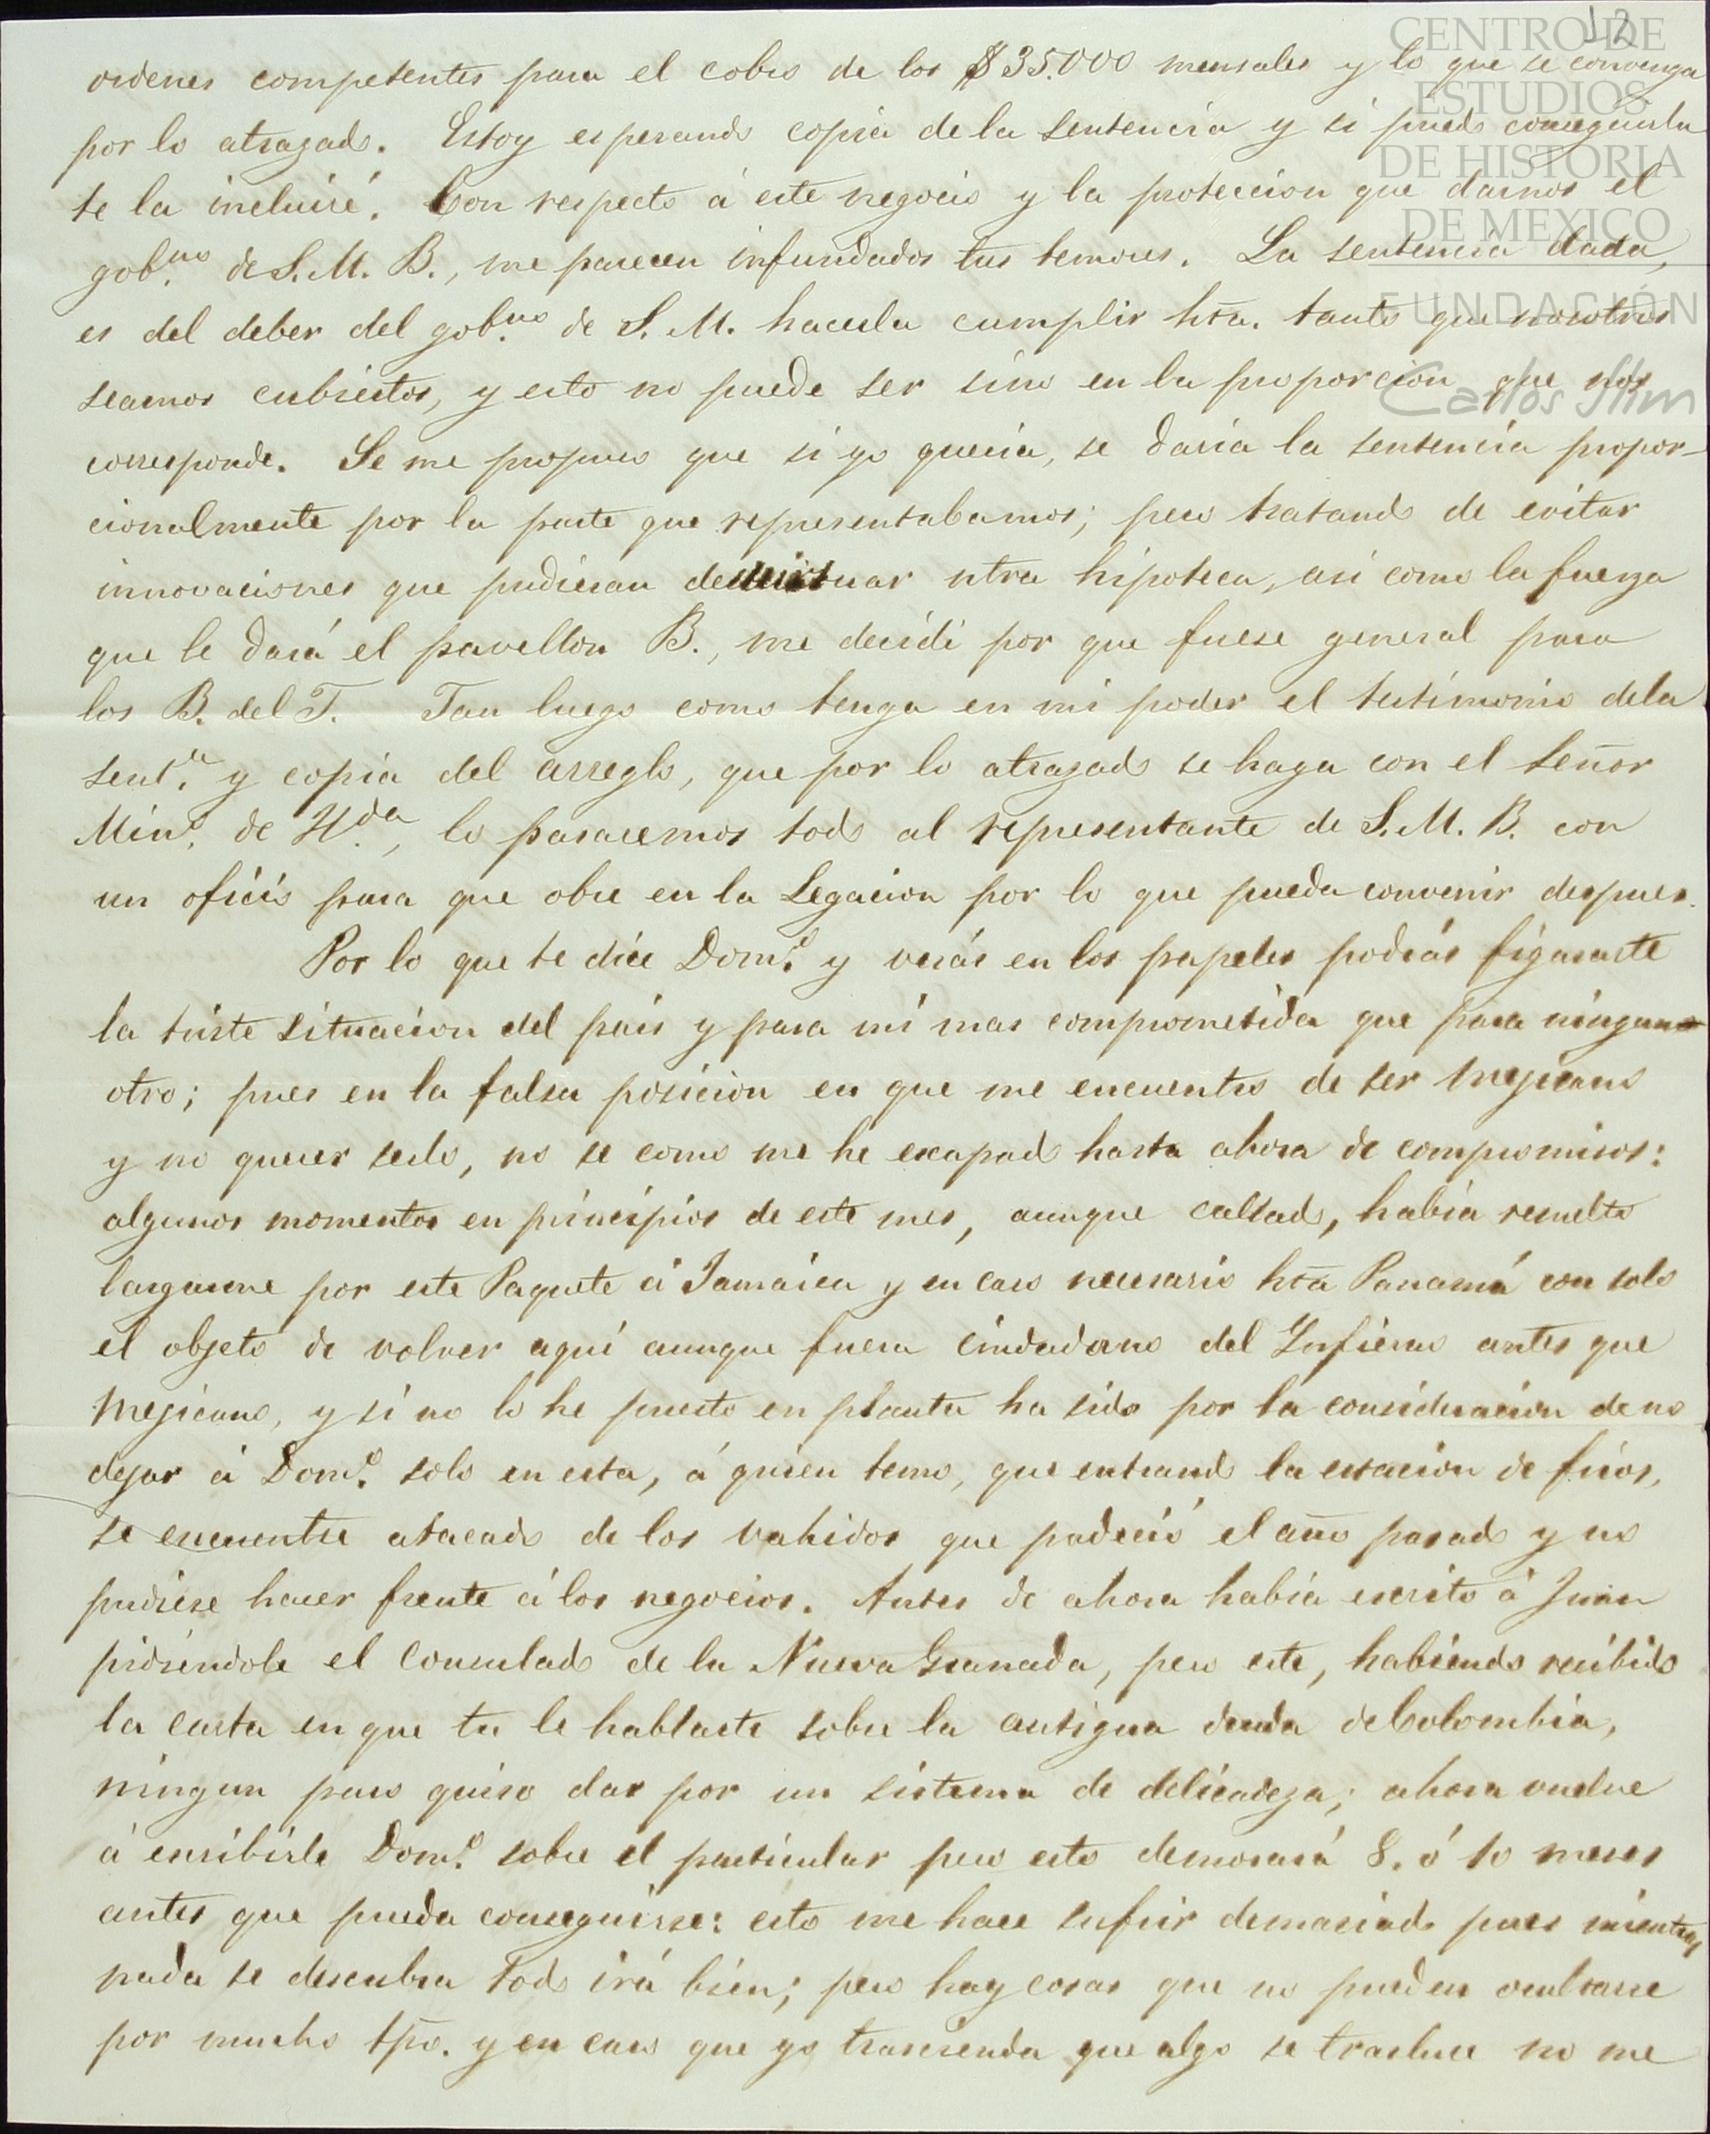 12
CENTRO DE
ESTUDIOS
DE HISTORIA
DE MEXICO
FUNDACIÓN
Carlos Slim
ordenes competentes para el cobro de los $35.000 mensales y lo que se convenga
por lo atrazado. Estoy esperando copia de la sentencia y si puedo conseguirla
te la incluiré. Con respecto á este negocio y la proteccion que darnos el
gob.no de S.M.B., me parecen infundados tus temores. La sentencia dada,
es del deber del gob.no de S.M. hacerla cumplir hta. tanto que nosotros
seamos cubiertos, y esto no puede ser sino en la proporcion que nos
corresponde. Se me propuso que si yo queria, se daria la sentencia propor-
cionalmente por la parte que representabamos; pero tratando de evitar
innovaciones que pudieran desvirtuar ntra hipoteca, asi como la fuerza
que le dará el pavellon B., me decidi por que fuese general para
los B. del T. Tan luego como tenga en mi poder el testimonio dela
sent.a y copia del arreglo, que por lo atrazado se haga con el Señor
Min.o de H.da, lo pasaremos todo al representante de S.M.B. con
un oficio para que obre en la Legacion por lo que pueda convenir despues.
Por lo que te dice Dom.o y verás en los papeles podrás figurarte
la triste situacion del pais y para mi mas comprometida que para ningun
otro; pues en la falsa posicion en que me encuentro de ser Mejicano
y no querer serlo, no se como me he escapado hasta ahora de compromisos:
algunos momentos en principios de este mes, aunque callado, habia resuelto
largarme por este Paquete á Jamaica y en caso necesario hta Panamá con solo
el objeto de volver aqui aunque fuera ciudadano del Infierno antes que
Mejicano, y si no lo he puesto en planta ha sido por la consideracion de no
dejar á Dom.o solo en esta, á quien temo, que entrando la estacion de frios,
se encuentre atacado de los vahidos que padeció el año pasado y no
pudiese hacer frente á los negocios. Antes de ahora habia escrito á Juan
pidiéndole el Consulado de la Nueva Granada, pero este, habiendo recibido
la carta en que tu le hablaste sobre la antigua deuda de Colombia,
ningun paso quiso dar por un sistema de delicadeza; ahora vuelve
á escribirle Dom.o sobre el particular pero esto demorará 8. ó 10 meses
antes que pueda conseguirse: esto me hace sufrir demasiado pues mientras
nada se descubra todo irá bien; pero hay cosas que no pueden ocultarse
por mucho tpo. y en caso que yo trascienda que algo se trasluce no me